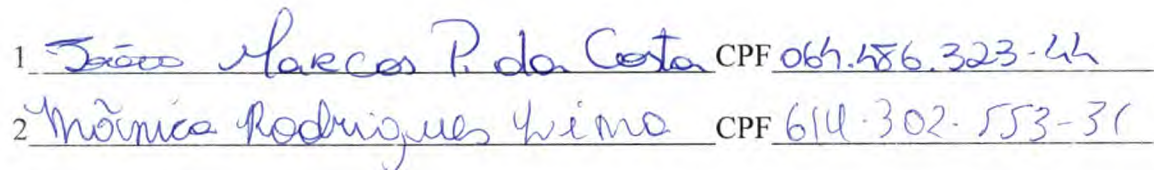 1 João Marcos P. da Costa CPF 064.486.323-44
2 Mônica Rodrigues Lima CPF 614.302.553-31